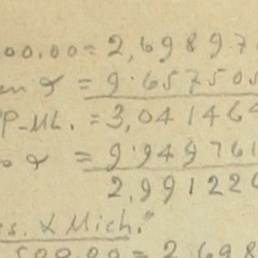 00.00 = 2,69897
en α = 9.657505
P-ML. = 3,04146
o α = 9.94976
2,99122
s. X Mich."
500.00 = 2.698